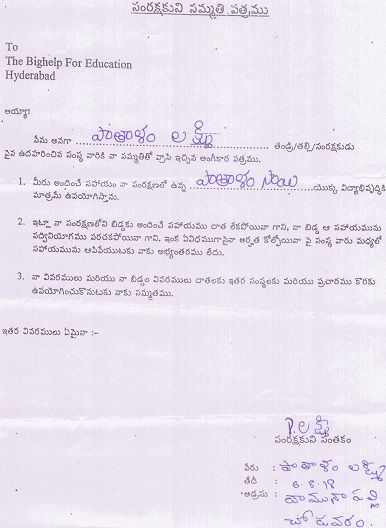 సంరక్షకుని సమ్మతి పత్రము
To
The Bighelp For Education
Hyderabad
అయ్యా!
నేను అనగా పాతాళం లక్ష్మి తండ్రి/తల్లి/సంరక్షకుడు
పైన ఉదహరించిన సంస్థ వారికి నా సమ్మతితో వ్రాసి ఇచ్చిన అంగీకార పత్రము.
1. మీరు అందించే సహాయం నా సంరక్షణలో ఉన్న పాతాళం సాయి యొక్క విద్యాభివృద్ధికి
మాత్రమే ఉపయోగిస్తాను.
2. ఇట్లా నా సంరక్షణలోని బిడ్డకు అందించే సహాయము దాత లేకపోయినా గాని, నా బిడ్డ ఆ సహాయమును
సద్వినియోగము పరచకపోయినా గాని, ఇంక ఏవిధముగానైనా అర్హత కోల్పోయినా పై సంస్థ వారు మధ్యలో
సహాయమును ఆపివేయుటకు నాకు అభ్యంతరము లేదు.
3. నా వివరములు మరియు నా బిడ్డ వివరములు దాతలకు ఇతర సంస్థలకు మరియు ప్రచారము కొరకు
ఉపయోగించుకొనుటకు నాకు సమ్మతము.
ఇతర వివరములు ఏమైనా :-
P.లక్ష్మి
సంరక్షకుని సంతకం
పేరు : పాతాళం లక్ష్మి
తేదీ : 6.8.18
అడ్రసు : రామునాపల్లి
చోడవరం